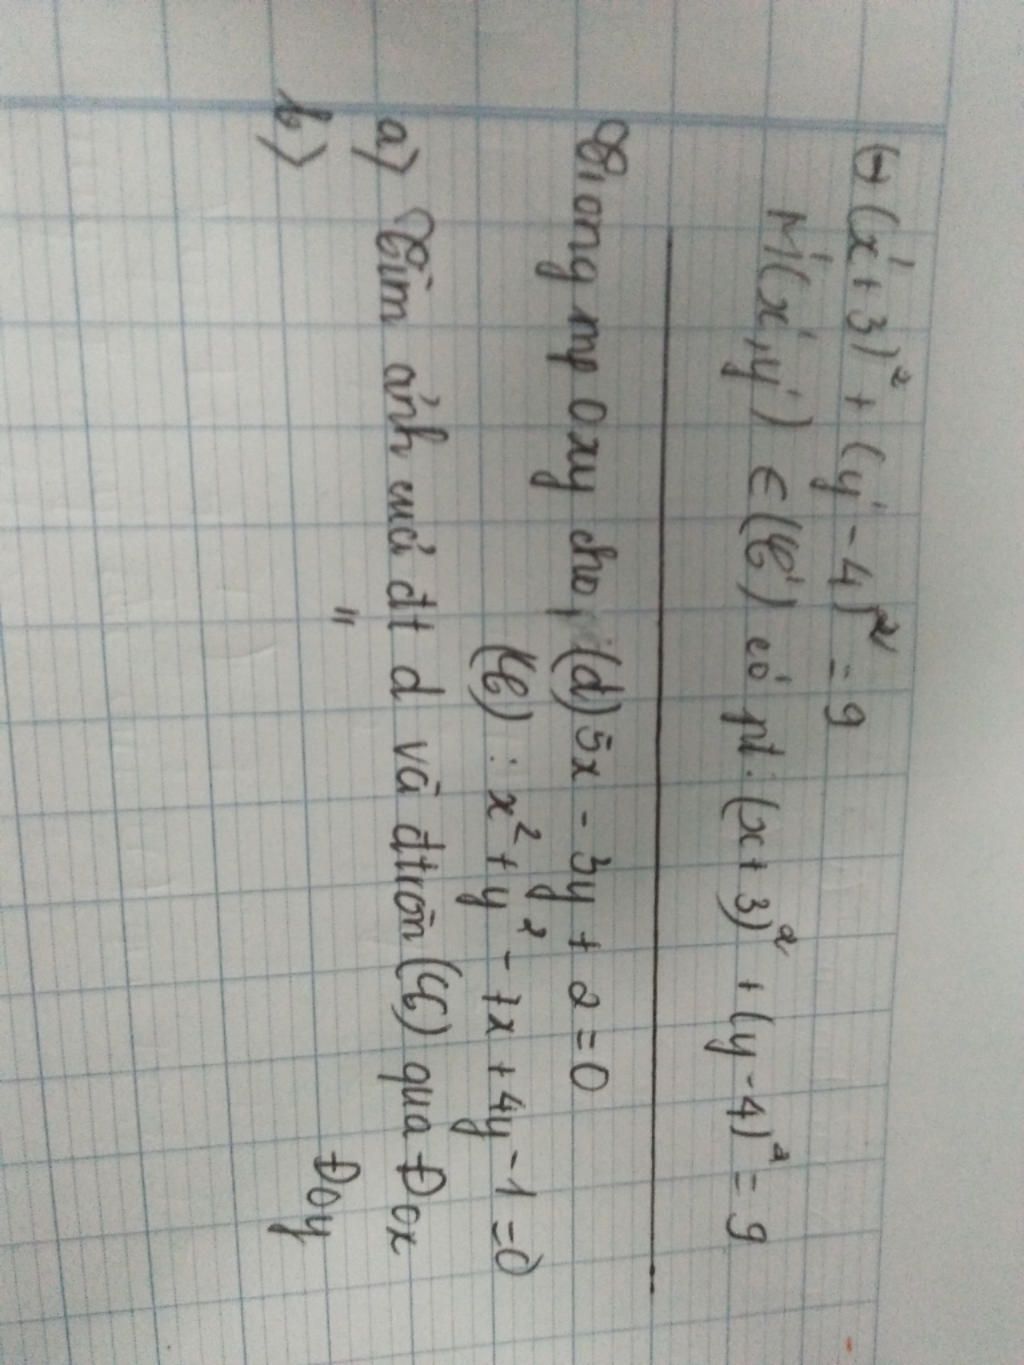 (→ (x' + 3)² + (y' - 4)² = 9
M'(x', y') ∈ (C') có pt: (x + 3)² + (y - 4)² = 9
Trong mp Oxy cho (d) 5x - 3y + 2 = 0
(C) : x² + y² - 7x + 4y - 1 = 0
a) Tìm ảnh của đt d và đtròn (C) qua Đox
b) " Đoy